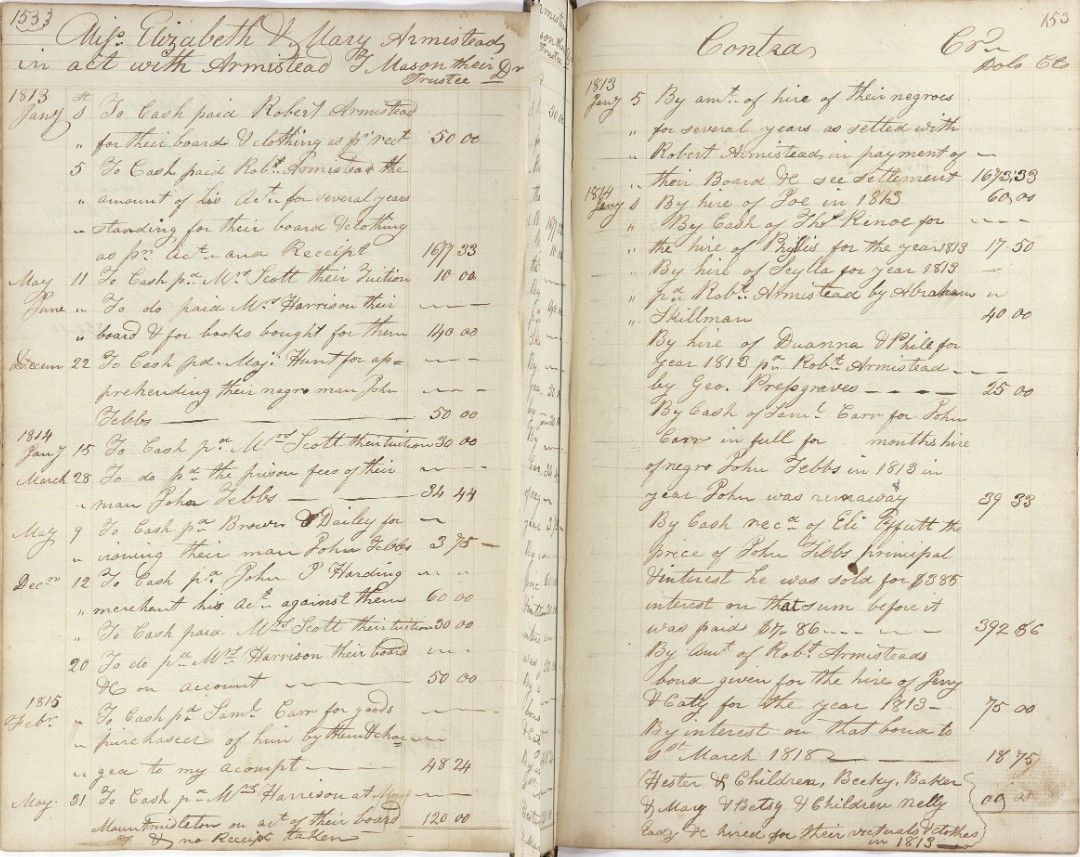 1533
Miss Elizabeth & Mary Armistead
in act with Armistead T Mason their
Trustee Dr
1813
Jany 1st To Cash paid Robert Armistead
" for their board & clothing as pr rect 50 00
5 To Cash paid Robt Armistead the
" amount of his Act for several years
" standing for their board & clothing
as pr Act and Receipt 1677 33
May 11 To Cash pd Mrs Scott their Tuition 10 00
June " To do paid Mrs Harrison their
" board & for books bought for them 140 00
Decem 22 To Cash pd Majr Hunt for ap=
prehending their negro man John
Tebbs 50 00
1814
Jany 15 To Cash pd Mrs Scott their tuition 30 00
March 28 To do pd the prison fees of their
" man John Tebbs 34 44
May 9 To Cash pd Brown & Dailey for
" ironing their man John Tebbs 3 75
Decm 12 To Cash pd John P Harding
" merchant his Act against them 60 00
" To Cash paid Mrs Scott their tuition 30 00
20 To do pd Mrs Harrison their board
&c on account 50 00
1815
Febr " To Cash pd Saml Carr for goods
" purchased of him by them & cha
" ged to my acompt 48 24
May 31 To Cash pd Mrs Harrison at
Mountmisleton on act of their board 120 00
& no Receipt taken
153
Contra Cr
Dols Cts
1813
Jany 5 By amt of hire of their negroes
" for several years as setled with
" Robert Armistead in payment of
" their Board &c see settlement 1673,33
1814
Jany 1 By hire of Joe in 1813 60,00
" By Cash of Thos Renoe for
" the hire of Phyllis for the year 1813 17.50
" By hire of Scylla for year 1813
" pd Robt Armistead by Abraham
" Skillman 40 00
By hire of Duanna & Phill for
year 1813 pd Robt Armistead
by Geo. Pressgraves 25 00
By Cash of Saml Carr for John
Carr in full for months hire
of negro John Tebbs in 1813 in
year John was runaway 39 33
By Cash recd of Eli Offutt the
price of John Tibbs principal
& interest he was sold for $385
interest on that sum before it
was paid $7.86 392 86
By amt of Robt Armisteads
bond given for the hire of Jerry
& Caty for the year 1813 75 00
By interest on that bond to
1st March 1818 18 75
Hester & Children, Becky, Baker
& Mary & Betsy & Children Nelly 00 00
&c hired for their victuals & clothes
in 1813